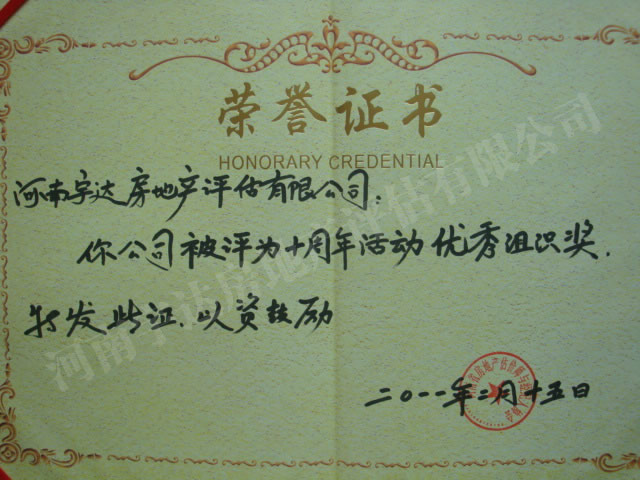 荣誉证书
HONORARY CREDENTIAL
河南宇达房地产评估有限公司:
你公司被评为十周年活动优秀组织奖.
特发此证.以资鼓励
二〇一一年二月十五日
河南宇达房地产评估有限公司